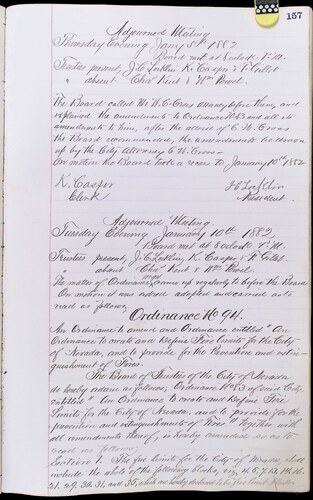 157
Adjourned Meeting
Thursday Evening Jany 5th 1882
Board met at 8 oclock P.M.
Trustees present, J.C. Laflin K. Casper & P. Gillet
" absent Chas Kent & Wm Powel.
The Board called Mr W.C. Evans attorney before them, and
explained the amendments to Ordinance No 63 and all its
amendments to him, after the advice of C.W. Evans
the Board recommended, the amendments be drawn
up by the City Attorney C.W. Evans.
On motion the Board took a recess to January 10th 1882
K. Casper
Clerk
President.
Adjourned Meeting
Tuesday Evening January 10th 1882
Board met at 8 oclock P.M.
Trustees present, J.C. Laflin, K. Casper & P. Gillet,
" absent Chas Kent & Wm Powel
The matter of Ordinances coming up regularly to before the Board
On motion it was ordered adopted and carried as to
read as follows,
Ordinance No 94.
An Ordinance to amend and Ordinance entitled "An
Ordinance to create and Define Fire limits for the City
of Nevada, and to provide for the Prevention and extin-
guishment of Fires.
The Board of Trustees of the City of Nevada
do hereby ordain as follows; Ordinance No 63 of said City,
entitled "An Ordinance to create and Define Fire
limits for the City of Nevada, and to provide for the
prevention and extinguishments of Fires" Together with
all amendments thereof, is hereby amended so as to
read as follows;
Section 1. The fire limits for the City of Nevada, shall
include the whole of the following Blocks, viz, 6. 7. 13. 14. 18.
21. 29. 30. 31. and 35, which are hereby declared to be